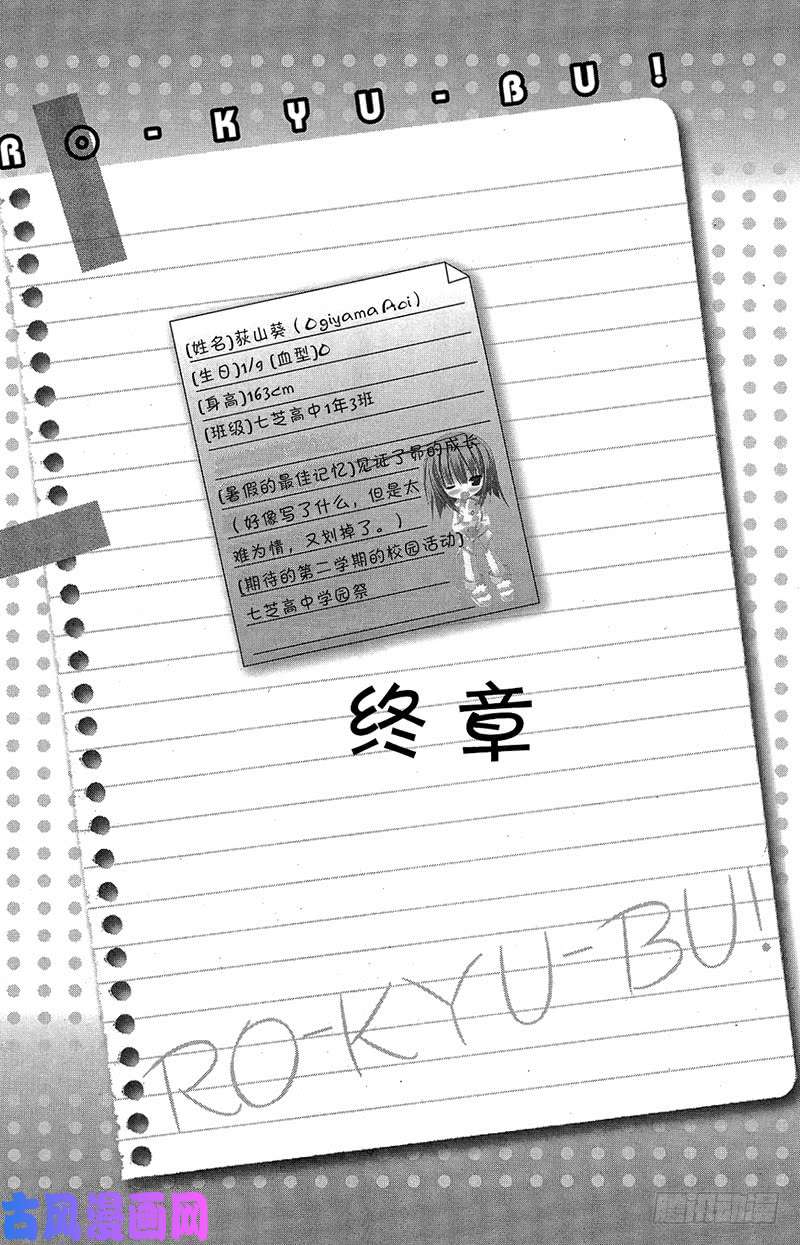 RO-KYU-BU!
[姓名]荻山葵(Ogiyama Aoi)
[生日]1/9 [血型]O
[身高]163cm
[班级]七芝高中1年3班
[暑假的最佳记忆]见证了昴的成长
(好像写了什么，但是太
难为情，又划掉了。)
[期待的第二学期的校园活动]
七芝高中学园祭
终章
RO-KYU-BU!
古风漫画网
腾讯动漫